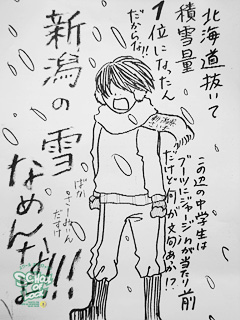 北海道抜いて
積雪量
1位になったん
だからな!!
新潟の雪
なめんなよ!!!
この辺の中学生は
ブーツにジャージinが当たり前
だけど何か文句あっか!?
ばか
さーみん
だすけ
SCHOOL OF LOCK!